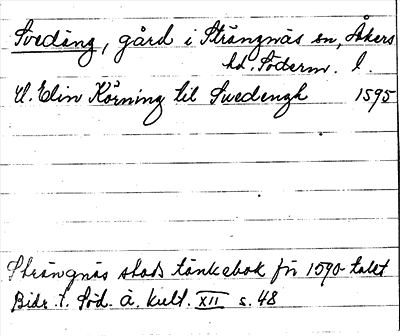 Svedäng, gård i Strängnäs sn, Åkers
hd. Söderm. l.
H. Elin Körning til Swedengh 1595
Strängnäs stads tänkebok för 1590-talet
Bidr. t. Söd. ä. kult. XII s. 48